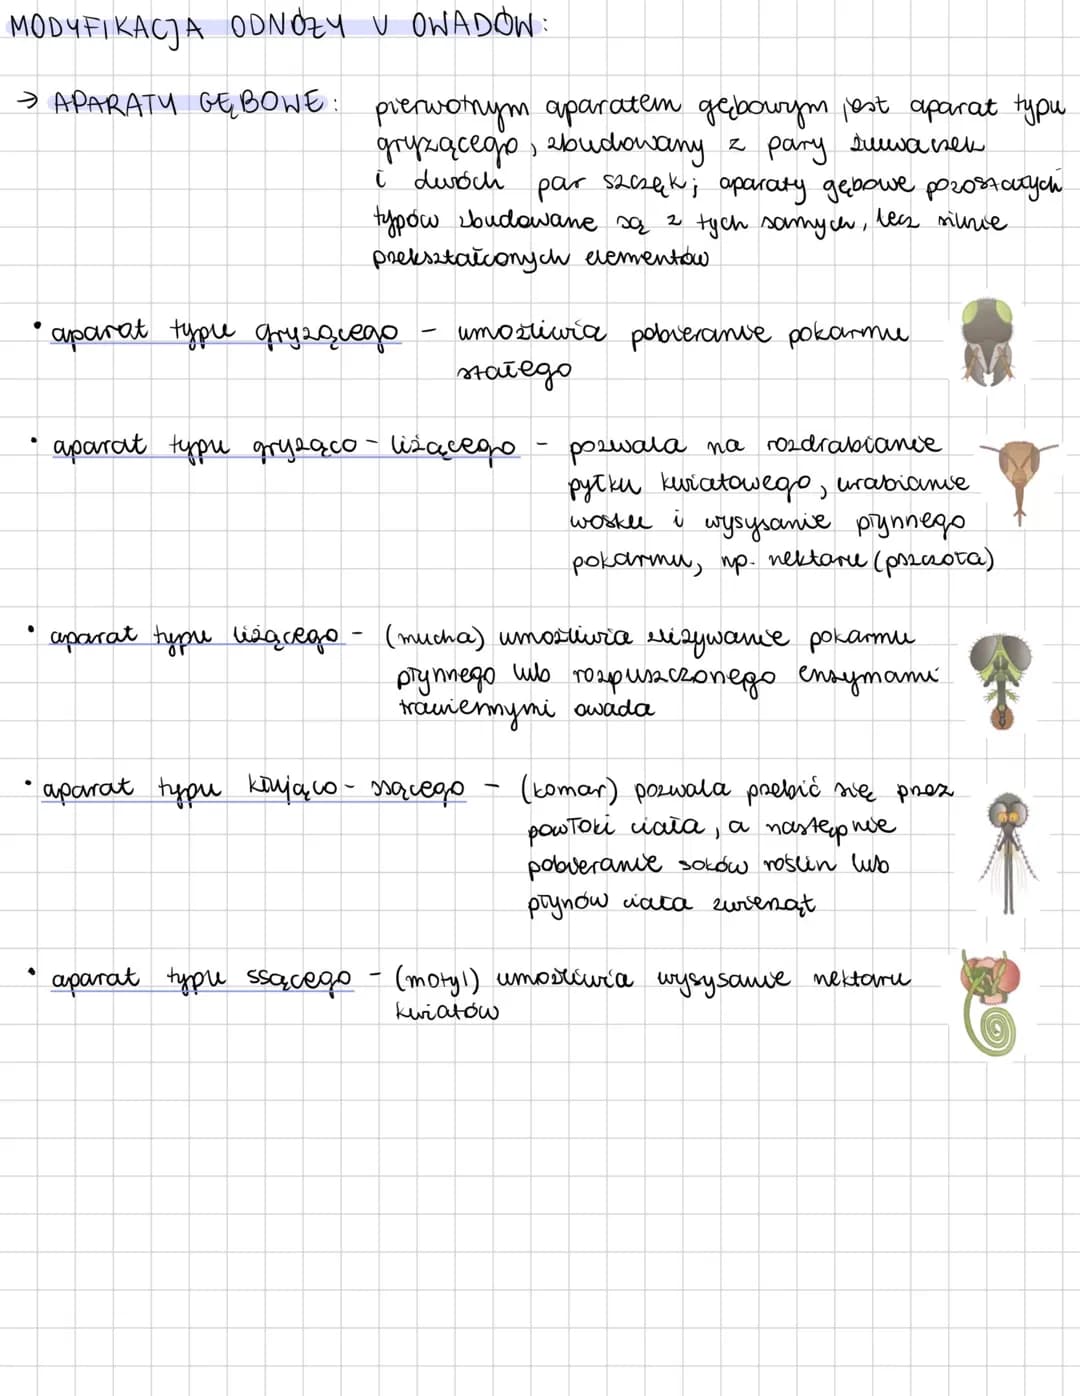 MODYFIKACJA ODNÓŻY U OWADÓW:
→ APARATY GĘBOWE: pierwotnym aparatem gębowym jest aparat typu
gryzącego, zbudowany z pary żuwaczek
i dwóch par szczęk; aparaty gębowe pozostałych
typów zbudowane są z tych samych, lecz silnie
przekształconych elementów
• aparat typu gryzącego - umożliwia pobieranie pokarmu
stałego
• aparat typu gryząco-liżącego - pozwala na rozdrabianie
pyłku kwiatowego, urabianie
wosku i wysysanie płynnego
pokarmu, np. nektaru (pszczoła)
• aparat typu liżącego - (mucha) umożliwia zlizywanie pokarmu
płynnego lub rozpuszczonego enzymami
trawiennymi owada
• aparat typu kłująco-ssącego - (komar) pozwala przebić się przez
powłoki ciała, a następnie
pobieranie soków roślin lub
płynów ciała zwierząt
• aparat typu ssącego - (motyl) umożliwia wysysanie nektaru
kwiatów